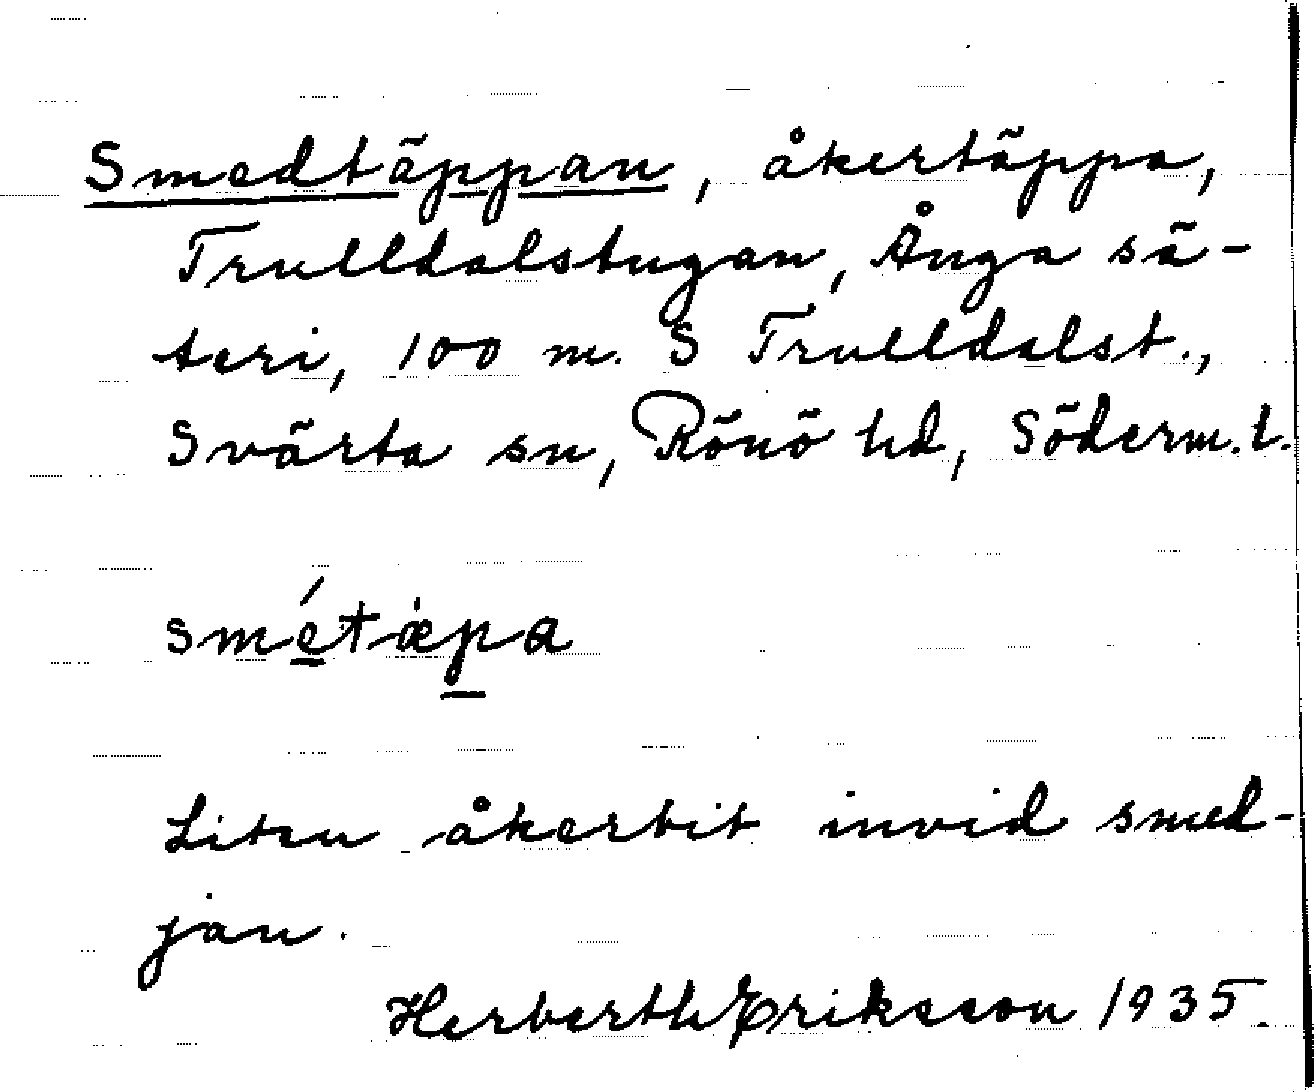 Smedtäppan, åkertäppa,
Trulldalstugan, Ånga sä-
teri, 100 m. S Trulldalst.,
Svärta sn, Rönö hd, Söderm. l.
smétæ̀pa
Liten åkerbit invid smed-
jan.
Herberth Eriksson 1935.